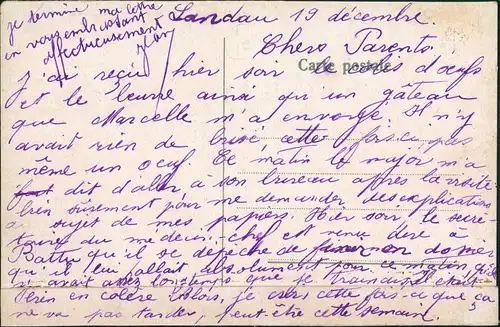 Landau 19 décembre.
Chers Parents
Carte postale
J'ai reçu hier soir le colis d'oeufs
et le beurre ainsi qu'un gâteau
que Marcelle m'a envoyé. Il n'y
avait rien de brisé, cette fois-ci, pas
même un oeuf. Ce matin le major m'a
dit d'aller à son bureau après la visite
bien surement pour me demander des explications
au sujet de mes papiers. Hier soir, le secré
taire du médecin chef est venu dire à
Battu qu'il se dépêche de donner
qu'il leur fallait absolument pour ce matin, qu'il
y avait assez longtemps que le traînait était
très en colère alors, je crois cette fois-ci que ça
ne va pas tarder, peut être cette semaine.
je termine ma lettre
en vous embrassant
affectueusement
Jean
5